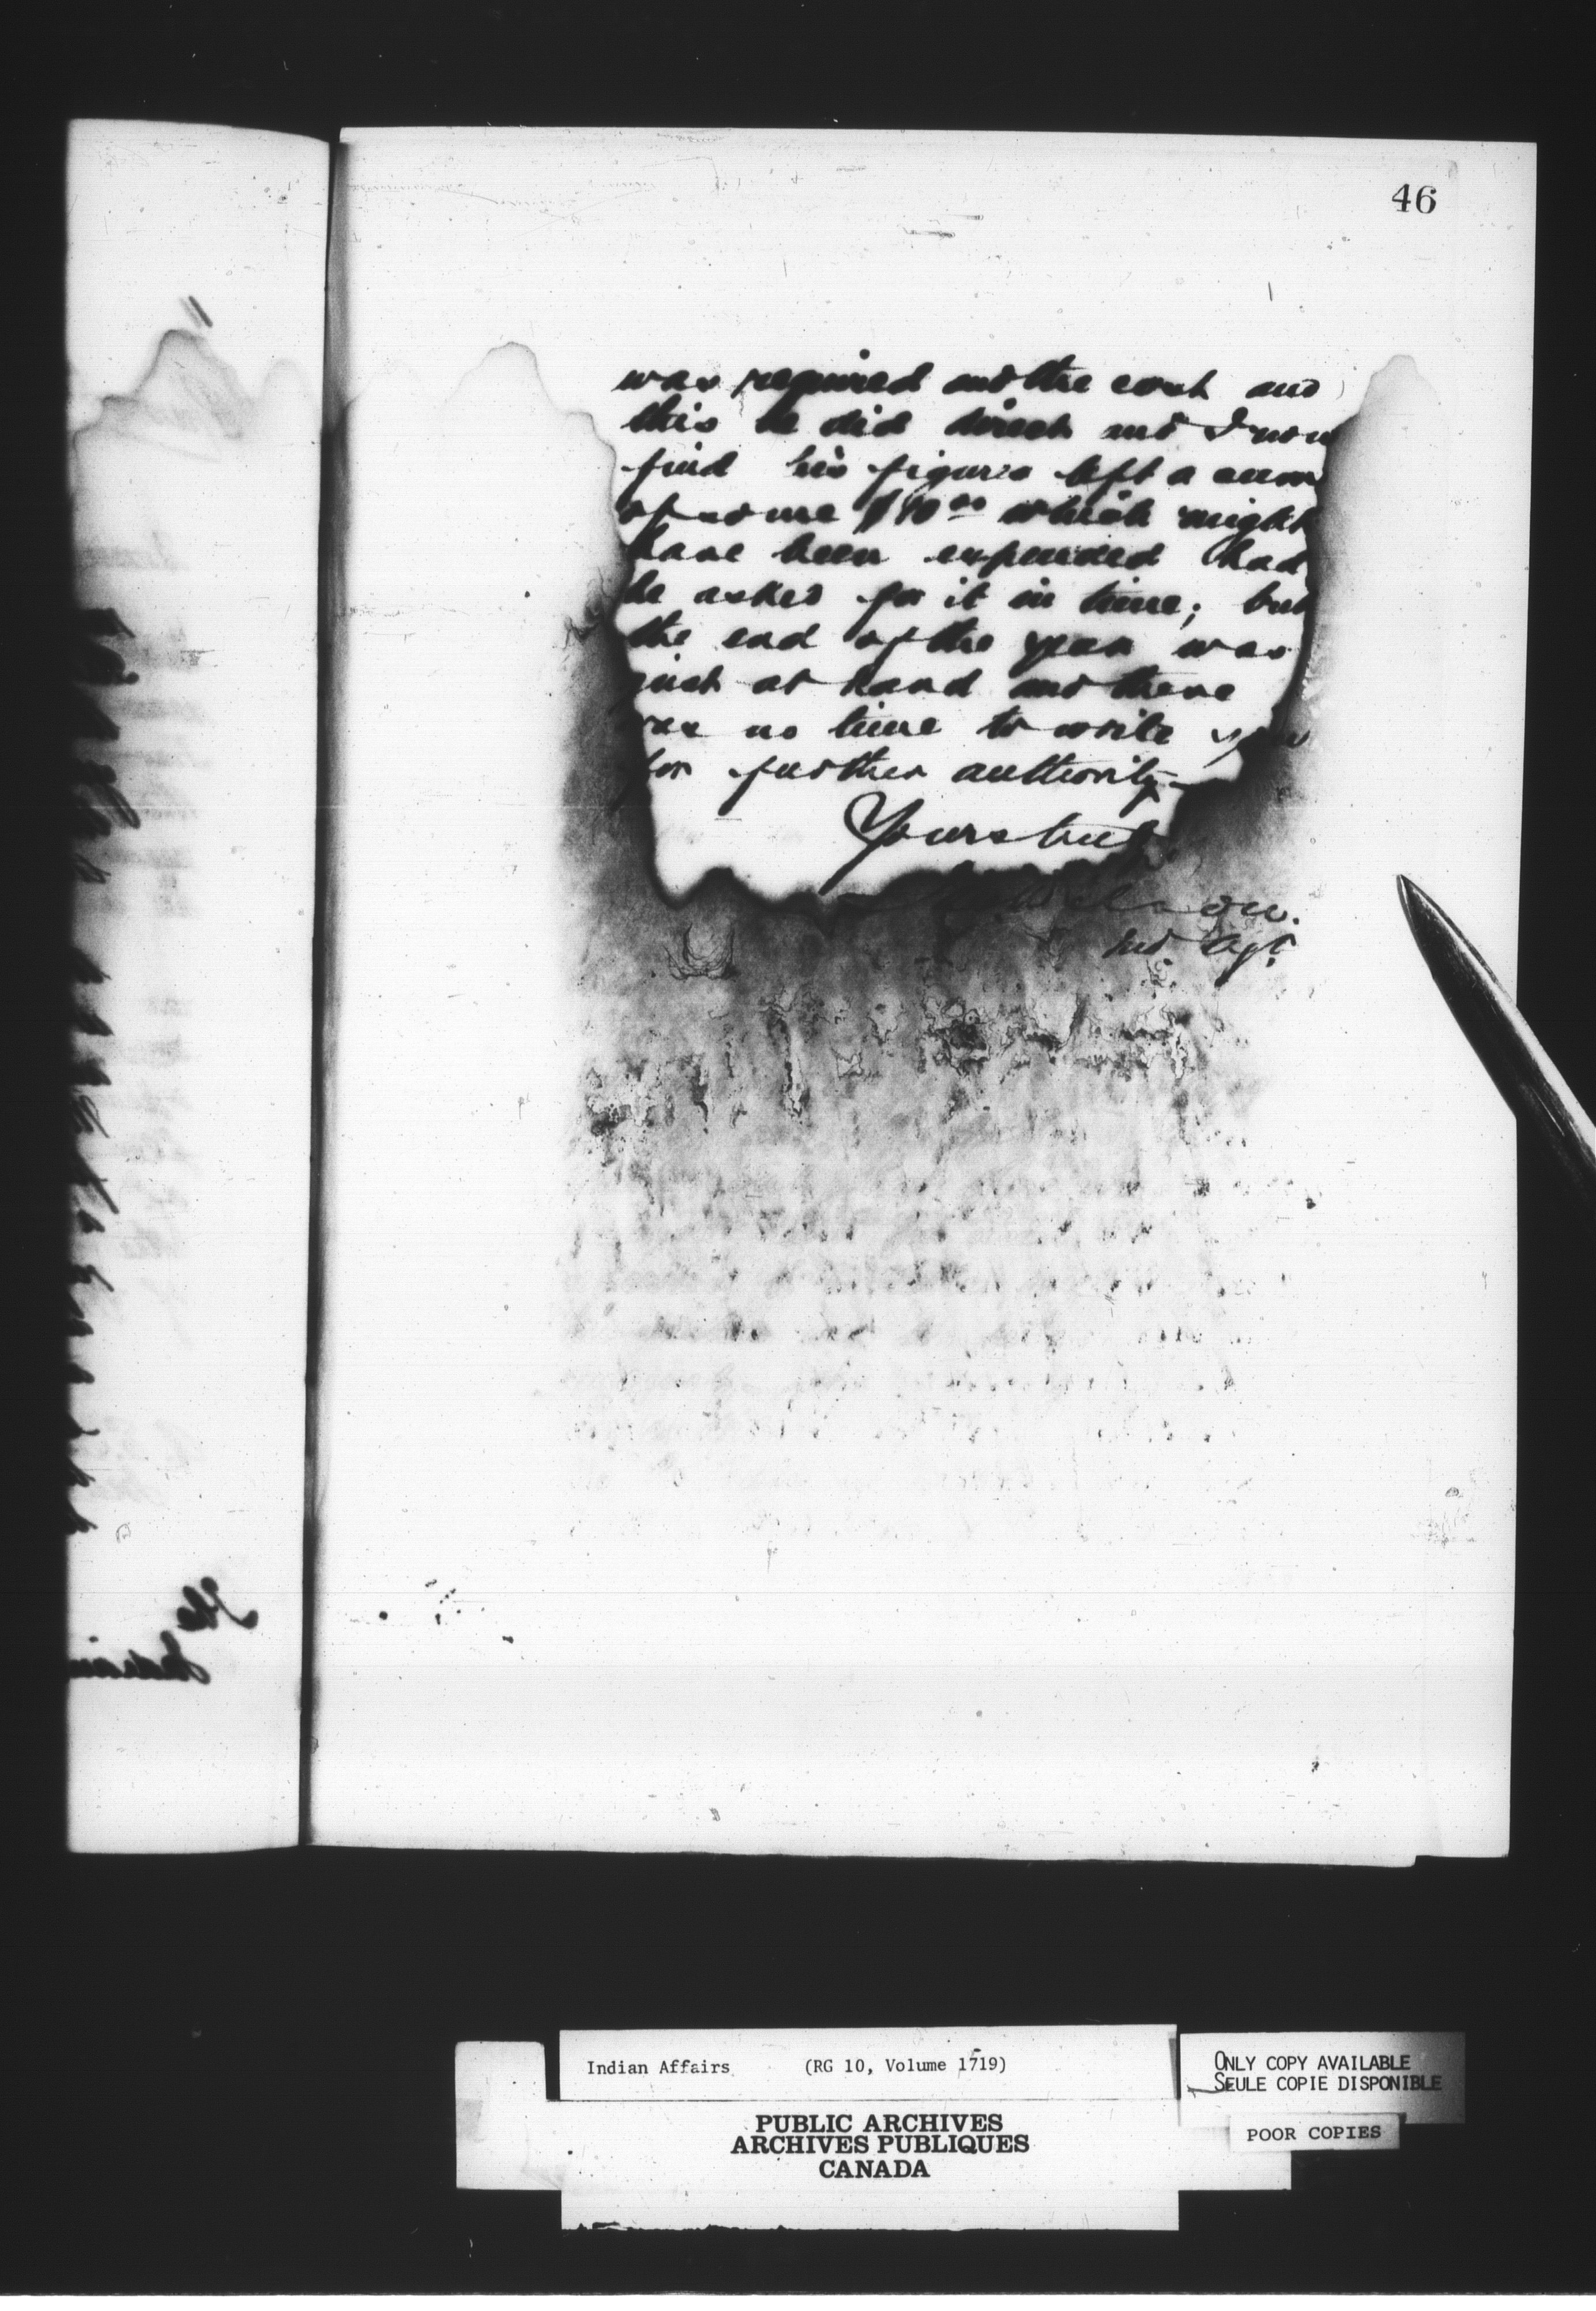 46
was required and the cost and
this he did direct and I now
find his figures left a sum
of some $90.00 which might
have been expended had
he asked for it in time; but
the end of the year was
just at hand and there
was no time to write you
for further authority
Yours truly
Wilson.
Ind. Agt.
The
Indian
Indian Affairs (RG 10, Volume 1719)
ONLY COPY AVAILABLE
SEULE COPIE DISPONIBLE
POOR COPIES
PUBLIC ARCHIVES
ARCHIVES PUBLIQUES
CANADA